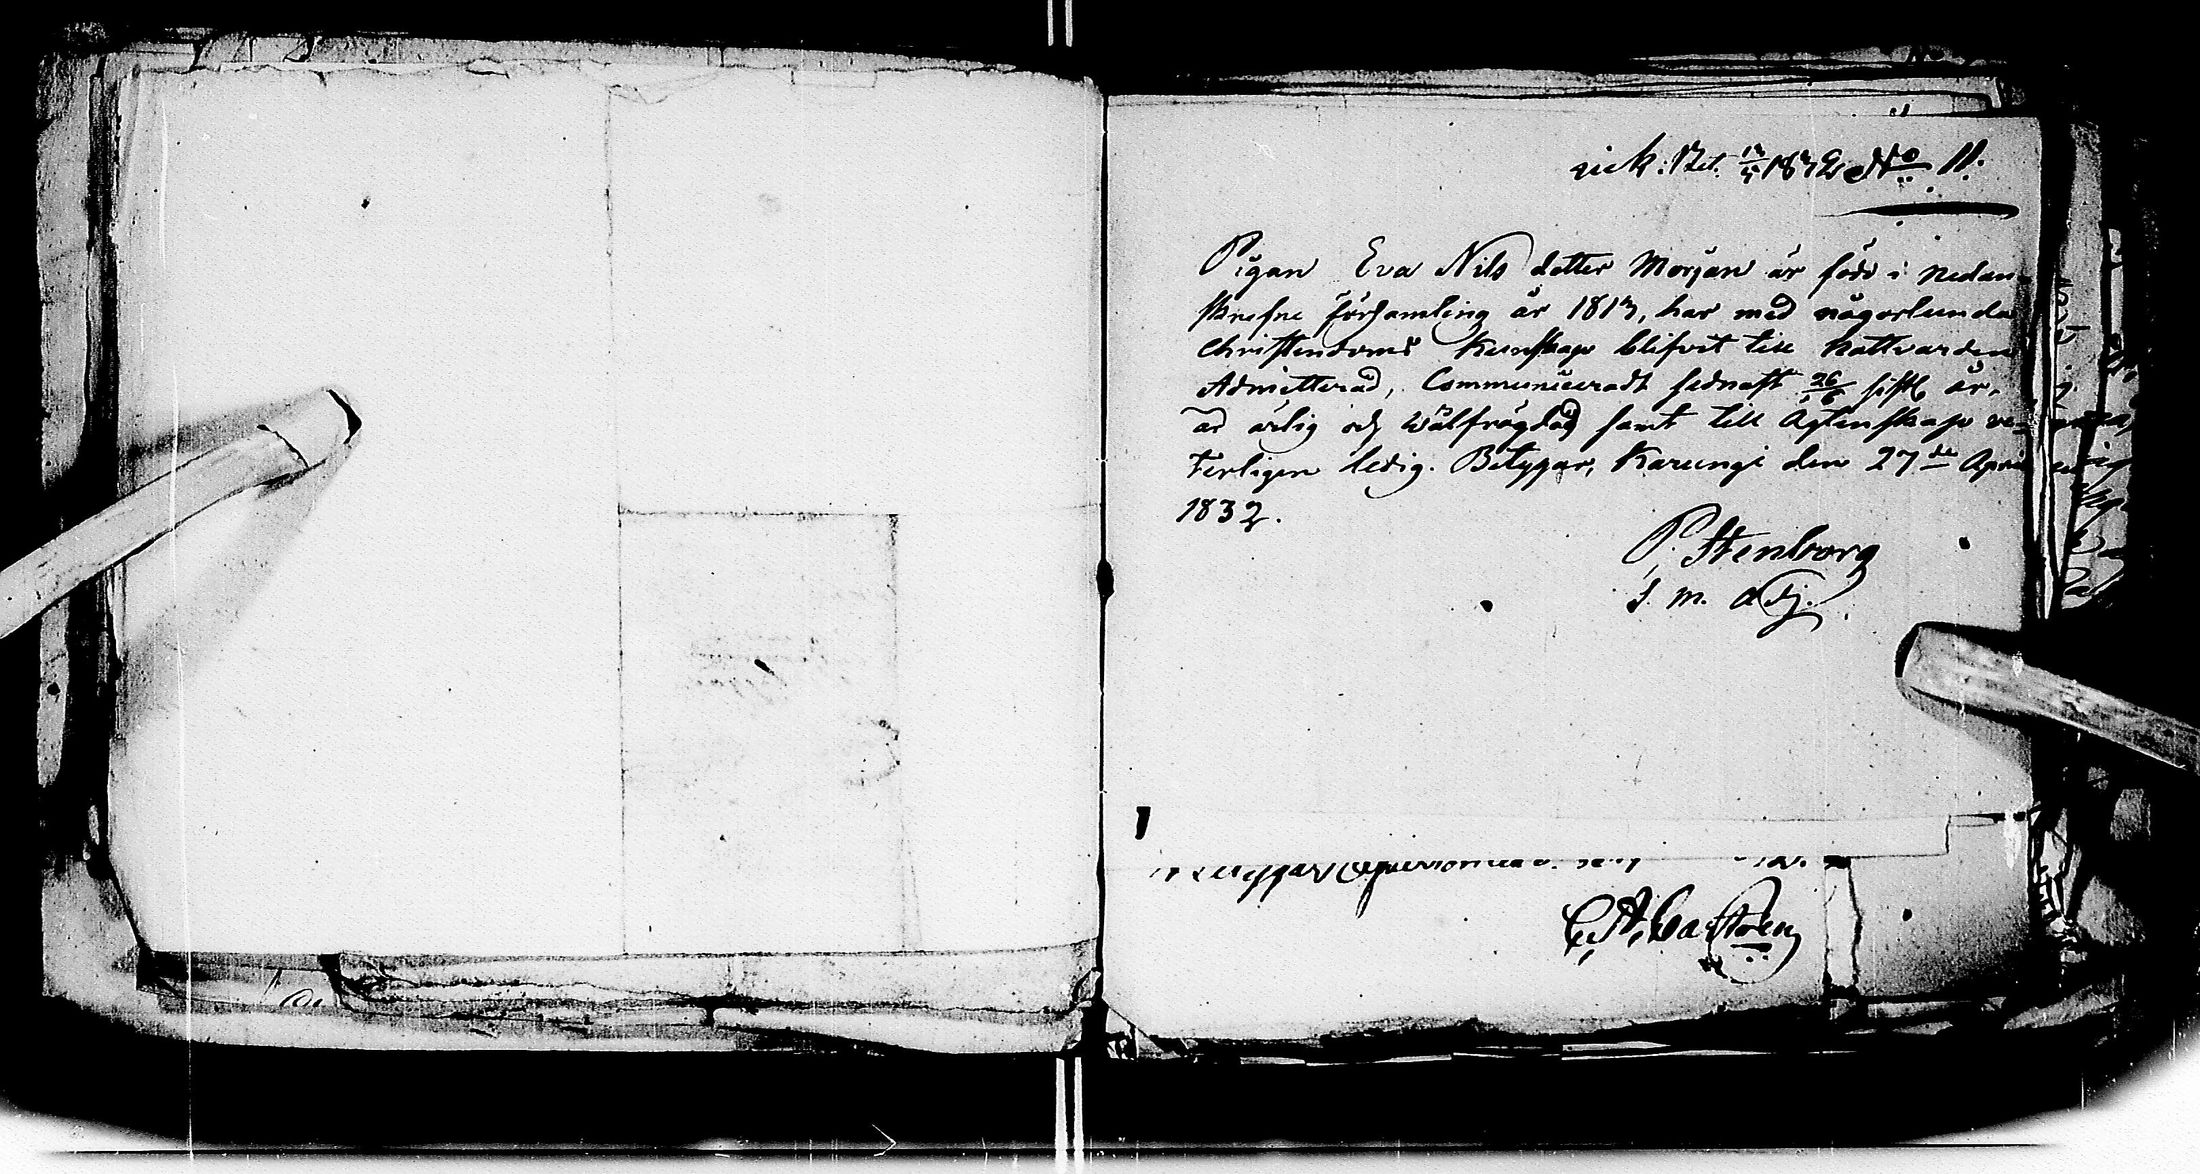 1832 No 11.
Pigan Eva Nils dotter Morjan är född i nedan-
skrefne församling år 1813, har med någorlunda
Christendoms Kunskap blifvit till nattvarden
Admitterad, Communiceradt sednast 26/6 sistl. år,
är ärlig och wälfrägdad samt till Agtenskap ve-
terligen ledig. Betygar, Karungi den 27de April
1832.
P. Stenborg
S. m. adj.
C. A. Castren